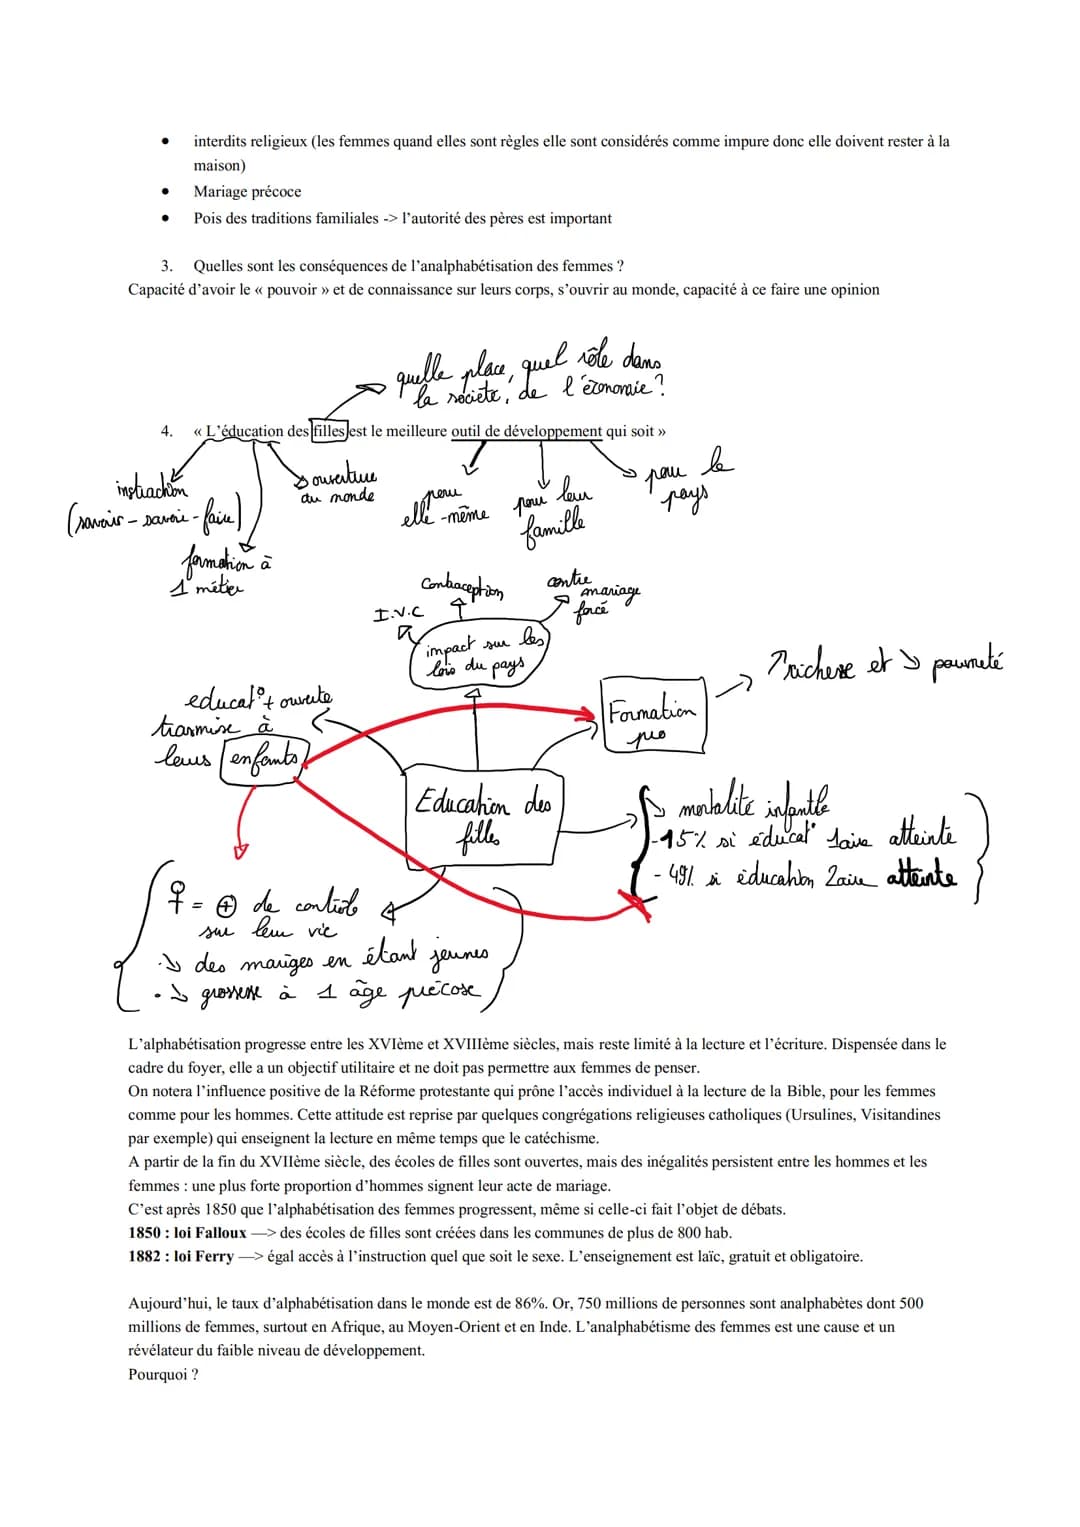 • interdits religieux (les femmes quand elles sont règles elle sont considérés comme impure donc elle doivent rester à la
maison)
• Mariage précoce
• Pois des traditions familiales -> l’autorité des pères est important
3. Quelles sont les conséquences de l’analphabétisation des femmes ?
Capacité d’avoir le « pouvoir » et de connaissance sur leurs corps, s’ouvrir au monde, capacité à ce faire une opinion
quelle place, quel rôle dans
la societe, de l'économie ?
4. « L’éducation des filles est le meilleure outil de développement qui soit »
instruction
(savoir - savoir - faire)
formation à
1 métier
ouverture
au monde
pour
elle - même
pour leur
famille
pour le
pays
I.V.C
Contraception
contre
mariage
forcé
impact sur les
lois du pays
↗ richesse et ↘ pauvreté
educat° + ouverte
transmise à
leurs enfants
Formation
pro
Education des
filles
↘ mortalité infantile
- 15% si éducat° 1aire atteinte
- 49% si éducation 2aire atteinte
♀ = ⊕ de controle
sur leur vie
• ↘ des mariges en étant jeunes
• ↘ grossesse à 1 âge précose
L’alphabétisation progresse entre les XVIème et XVIIIème siècles, mais reste limité à la lecture et l’écriture. Dispensée dans le
cadre du foyer, elle a un objectif utilitaire et ne doit pas permettre aux femmes de penser.
On notera l’influence positive de la Réforme protestante qui prône l’accès individuel à la lecture de la Bible, pour les femmes
comme pour les hommes. Cette attitude est reprise par quelques congrégations religieuses catholiques (Ursulines, Visitandines
par exemple) qui enseignent la lecture en même temps que le catéchisme.
A partir de la fin du XVIIème siècle, des écoles de filles sont ouvertes, mais des inégalités persistent entre les hommes et les
femmes : une plus forte proportion d’hommes signent leur acte de mariage.
C’est après 1850 que l’alphabétisation des femmes progressent, même si celle-ci fait l’objet de débats.
1850 : loi Falloux —> des écoles de filles sont créées dans les communes de plus de 800 hab.
1882 : loi Ferry —> égal accès à l’instruction quel que soit le sexe. L’enseignement est laïc, gratuit et obligatoire.
Aujourd’hui, le taux d’alphabétisation dans le monde est de 86%. Or, 750 millions de personnes sont analphabètes dont 500
millions de femmes, surtout en Afrique, au Moyen-Orient et en Inde. L’analphabétisme des femmes est une cause et un
révélateur du faible niveau de développement.
Pourquoi ?